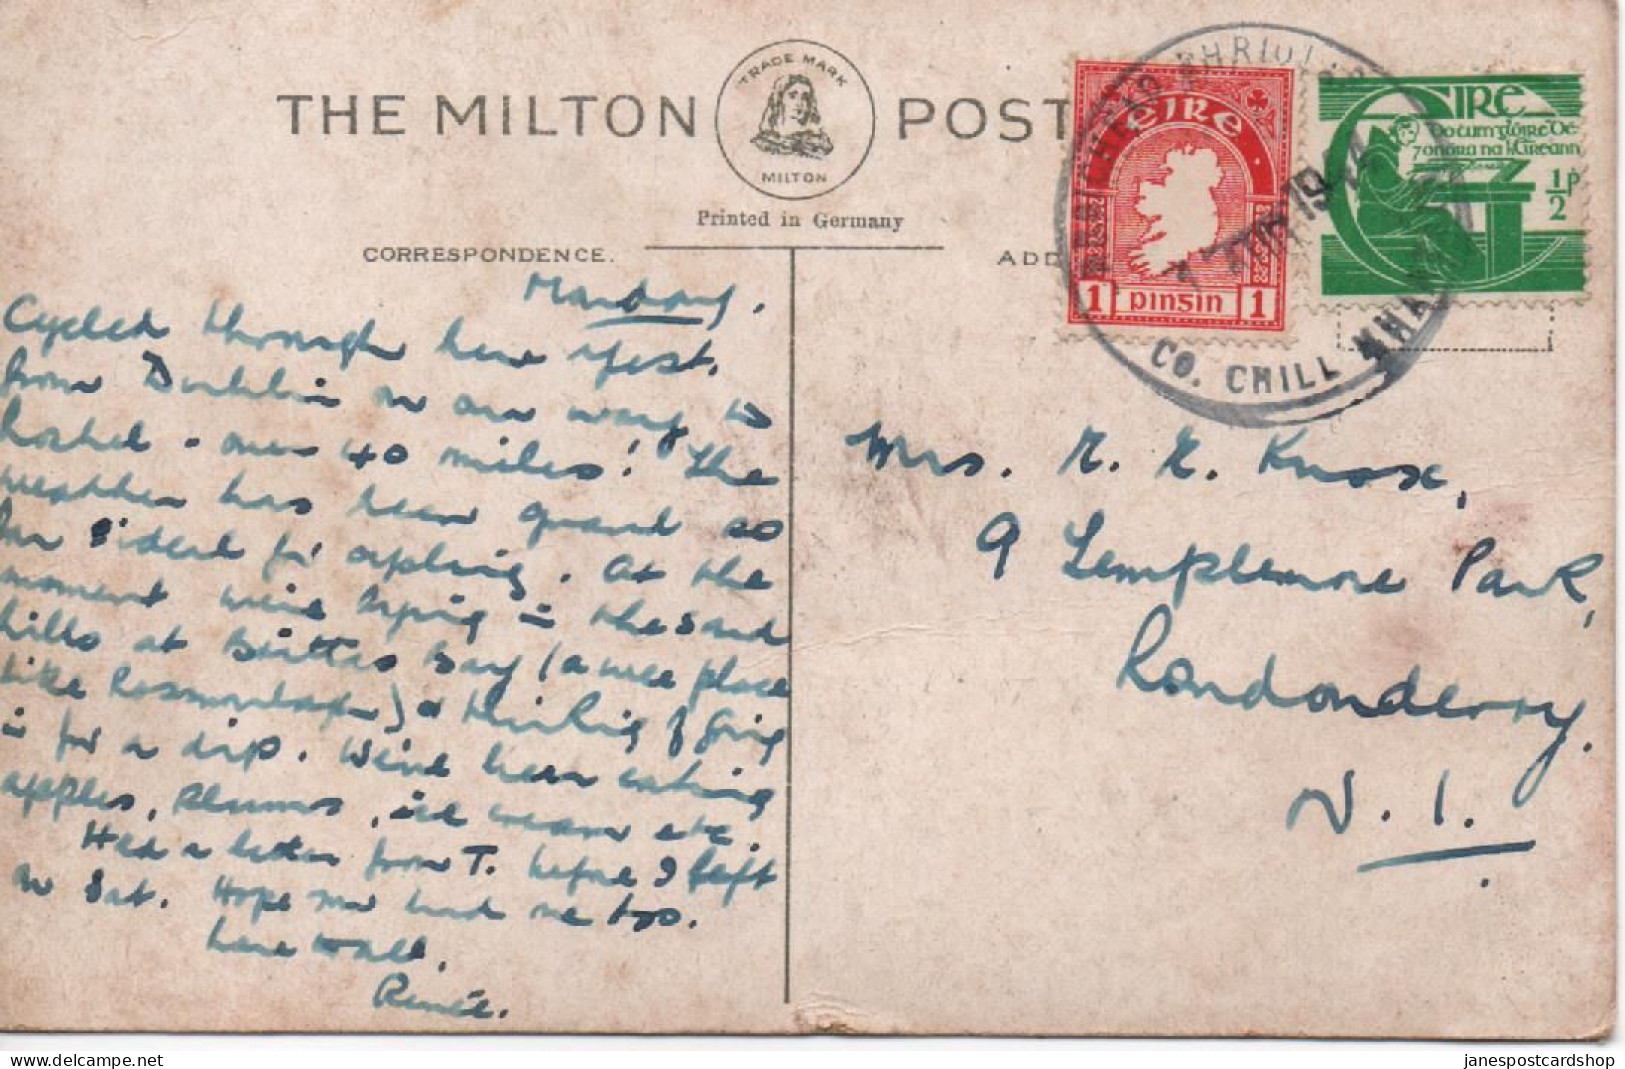 THE MILTON POST
TRADE MARK
MILTON
Printed in Germany
CORRESPONDENCE.
ADD
EIRE
1 PINSIN 1
EIRE
Do cum glóire Dé
7 onóra na hÉireann
½p
19
CO. CHILL MHAN
Monday.
Cycled through here yest.
from Dublin on our way to
hostel - over 40 miles! The
weather has been grand so
far & ideal for cycling. At the
moment we're lying in the sand
hills at Brittas Bay (a nice place
like Rosmentagh) & thinking of going
in for a dip. We've been eating
apples, plums, ice cream etc.
Had a letter from T. before I left
on Sat. Hope you had one too.
Love to all,
Renée.
Mrs. R. R. Knox,
9 Templemore Park,
Londonderry.
N. I.
janespostcardshop